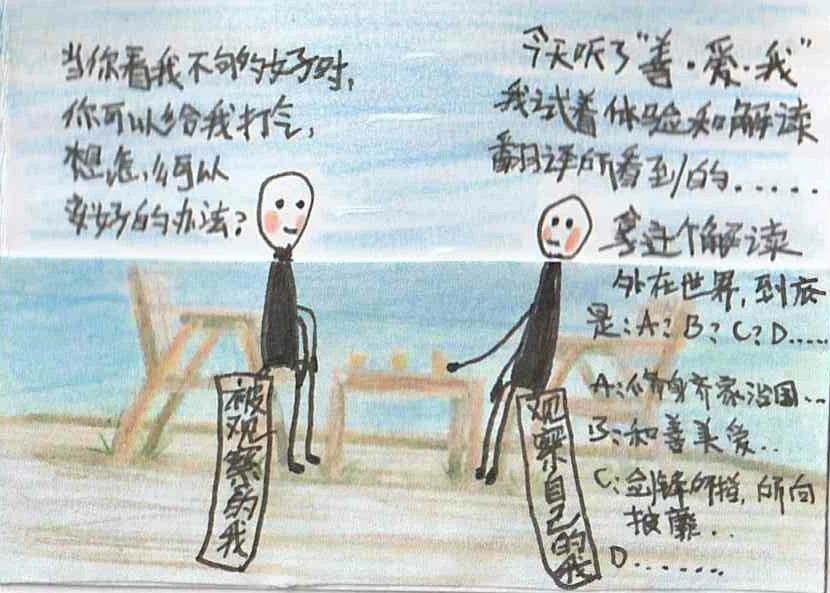 当你看我不够的好时,
你可以给我打气,
想怎么可以
变好的办法?
今天听了"善·爱·我"
我试着体验和解读
翻译所看到的.....
拿这个解读
外在世界,到底
是:A?B?C?D.....
A:修身齐家治国...
B:和善美爱..
C:剑锋所指,所向
披靡..
D.......
被观察的我
观察自己的我